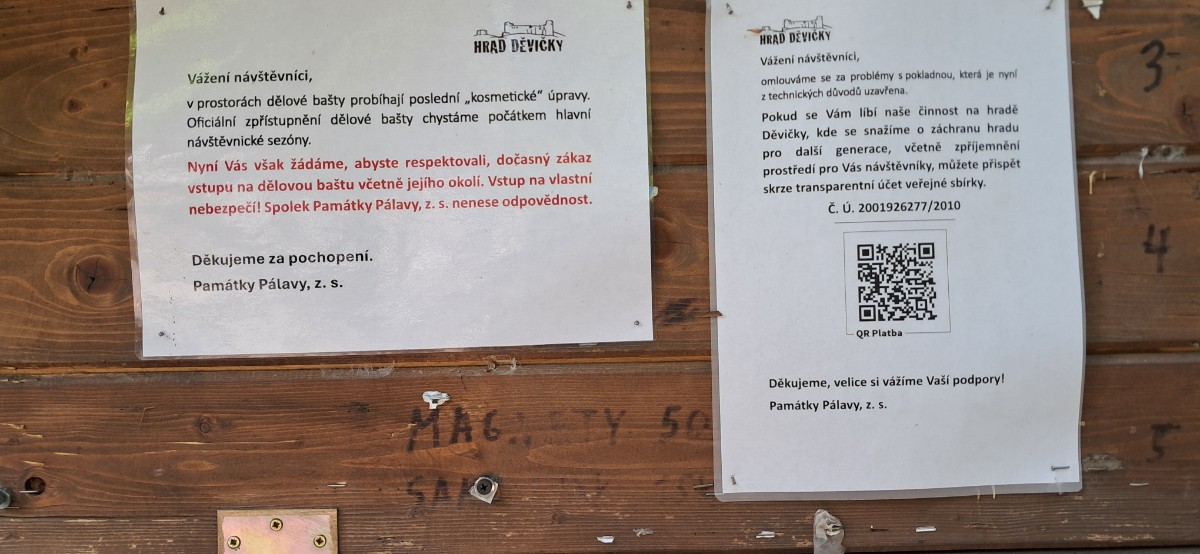 HRAD DĚVIČKY
Vážení návštěvníci,
v prostorách dělové bašty probíhají poslední „kosmetické“ úpravy.
Oficiální zpřístupnění dělové bašty chystáme počátkem hlavní
návštěvnické sezóny.
Nyní Vás však žádáme, abyste respektovali, dočasný zákaz
vstupu na dělovou baštu včetně jejího okolí. Vstup na vlastní
nebezpečí! Spolek Památky Pálavy, z. s. nenese odpovědnost.
Děkujeme za pochopení.
Památky Pálavy, z. s.
HRAD DĚVIČKY
Vážení návštěvníci,
omlouváme se za problémy s pokladnou, která je nyní
z technických důvodů uzavřena.
Pokud se Vám líbí naše činnost na hradě
Děvičky, kde se snažíme o záchranu hradu
pro další generace, včetně zpříjemnění
prostředí pro Vás návštěvníky, můžete přispět
skrze transparentní účet veřejné sbírky.
Č. Ú. 2001926277/2010
QR Platba
Děkujeme, velice si vážíme Vaší podpory!
Památky Pálavy, z. s.
3
4
5
MAGNETY 50